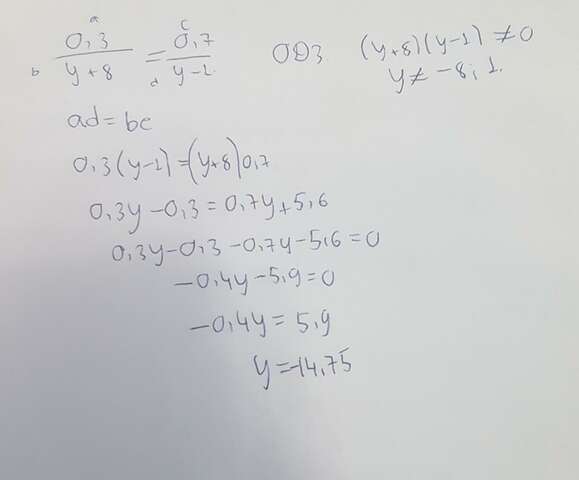 a c
0,3 / y+8 = 0,7 / y-1 ОДЗ (y+8)(y-1) ≠ 0
b d y ≠ -8; 1.
ad = bc
0,3(y-1) = (y+8)0,7
0,3y - 0,3 = 0,7y + 5,6
0,3y - 0,3 - 0,7y - 5,6 = 0
-0,4y - 5,9 = 0
-0,4y = 5,9
y = -14,75